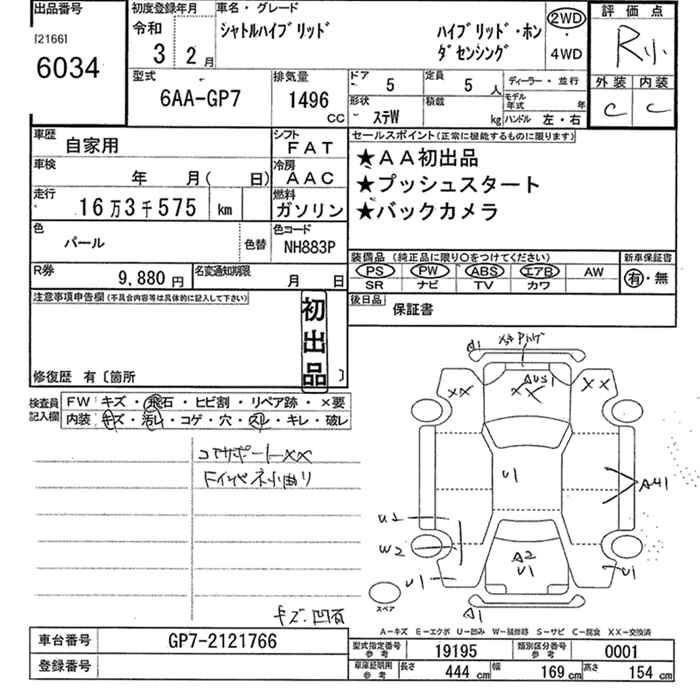 出品番号
[2166]
6034
初度登録年月
令和
3年2月
車名・グレード
シャトルハイブリッド
ハイブリッド・ホン
ダセンシング
2WD
4WD
評価点
R小
外装 内装
C C
型式
6AA-GP7
排気量
1496
CC
ドア 5
定員 5人
ディーラー・並行
形状 ステW
積載 kg
モデル年式 年
ハンドル 左・右
車歴 自家用
シフト FAT
車検 年 月( 日)
冷房 AAC
走行 16万3千575 km
燃料 ガソリン
色 パール
色替
色コード NH883P
R券 9,880円
名変通知期限 月 日
セールスポイント(正常に機能するものに限ります)
★AA初出品
★プッシュスタート
★バックカメラ
装備品(純正品に限り○をつけてください)
PS PW ABS エアB AW
SR ナビ TV カワ
新車保証書
有・無
後日品 保証書
注意事項申告欄(不具合内容等は具体的に記入して下さい)
初出品
修復歴 有〔箇所 〕
検査員記入欄
FW キズ・飛石・ヒビ割・リペア跡・×要
内装 キズ・汚レ・コゲ・穴・スレ・キレ・破レ
コアサポートXX
キズ・凹有
A1
XX XX XX
U1
A41
U2
W2
A2
U1
U1
U1
A1
スペア
A-キズ E-エクボ U-凹み W-補修跡 S-サビ C-腐食 XX-交換済
車台番号 GP7-2121766
登録番号
型式指定番号参考 19195
類別区分番号参考 0001
車庫証明用参考
長さ 444 cm
幅 169 cm
高さ 154 cm